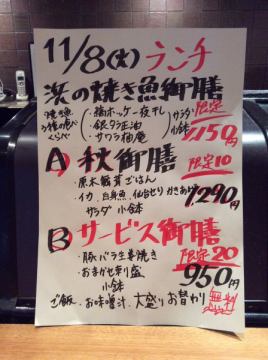 11/8(火) ランチ
浜の焼き魚御膳
3種の魚 ・縞ホッケ一夜干し サラダ 限定
3種の食べ ・銀ダラ正油 小鉢
くらべ ・サワラ柚庵 1150円
A 秋御膳 限定10
・原木舞茸ごはん
・イカ、白身魚、仙台セリかきあげ 1290円
サラダ 小鉢
B サービス御膳
限定20
・豚バラ生姜焼き
・おまかせ串り盛 950円
小鉢
ご飯、お味噌汁、大盛りお替わり 無料